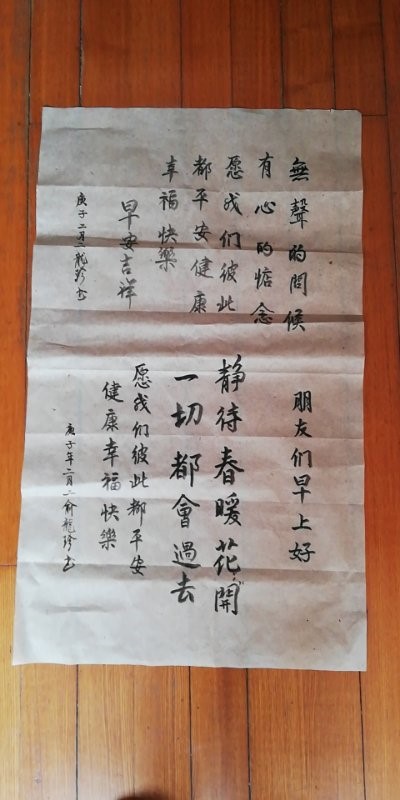 無聲的問候
有心的惦念
愿我们彼此
都平安健康
幸福快樂
早安吉祥
庚子二月二龍珍书
朋友们早上好
静待春暖花開
一切都會過去
愿我们彼此都平安
健康幸福快樂
庚子年二月二俞龍珍书